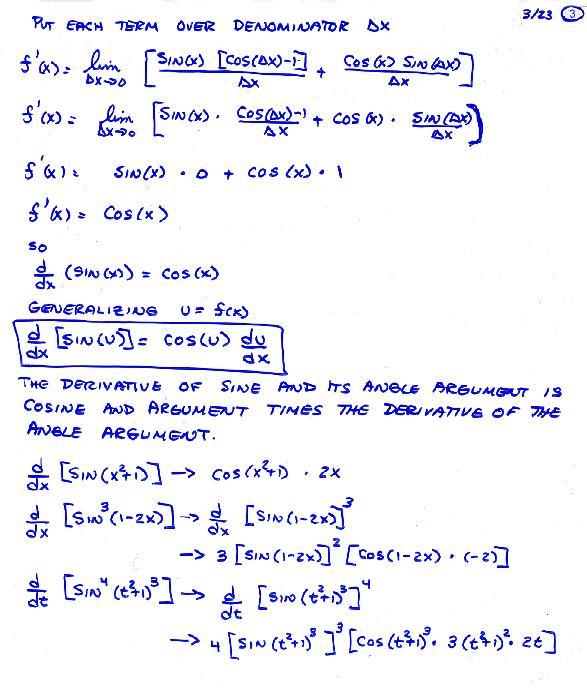 3/23 ③
PUT EACH TERM OVER DENOMINATOR Δx
f'(x) = lim Δx→0 [SIN(x) [COS(Δx)-1]/Δx + COS(x) SIN(Δx)/Δx]
f'(x) = lim Δx→0 [SIN(x) · COS(Δx)-1/Δx + COS(x) · SIN(Δx)/Δx]
f'(x) = SIN(x) · 0 + COS(x) · 1
f'(x) = COS(x)
SO
d/dx (SIN(x)) = COS(x)
GENERALIZING U = f(x)
d/dx [SIN(U)] = COS(U) du/dx
THE DERIVATIVE OF SINE AND ITS ANGLE ARGUMENT IS
COSINE AND ARGUMENT TIMES THE DERIVATIVE OF THE
ANGLE ARGUMENT.
d/dx [SIN(x²+1)] → COS(x²+1) · 2x
d/dx [SIN³(1-2x)] → d/dx [SIN(1-2x)]³
→ 3 [SIN(1-2x)]² [COS(1-2x) · (-2)]
d/dt [SIN⁴(t²+1)³] → d/dt [SIN(t²+1)³]⁴
→ 4 [SIN(t²+1)³]³ [COS(t²+1)³ · 3(t²+1)² · 2t]